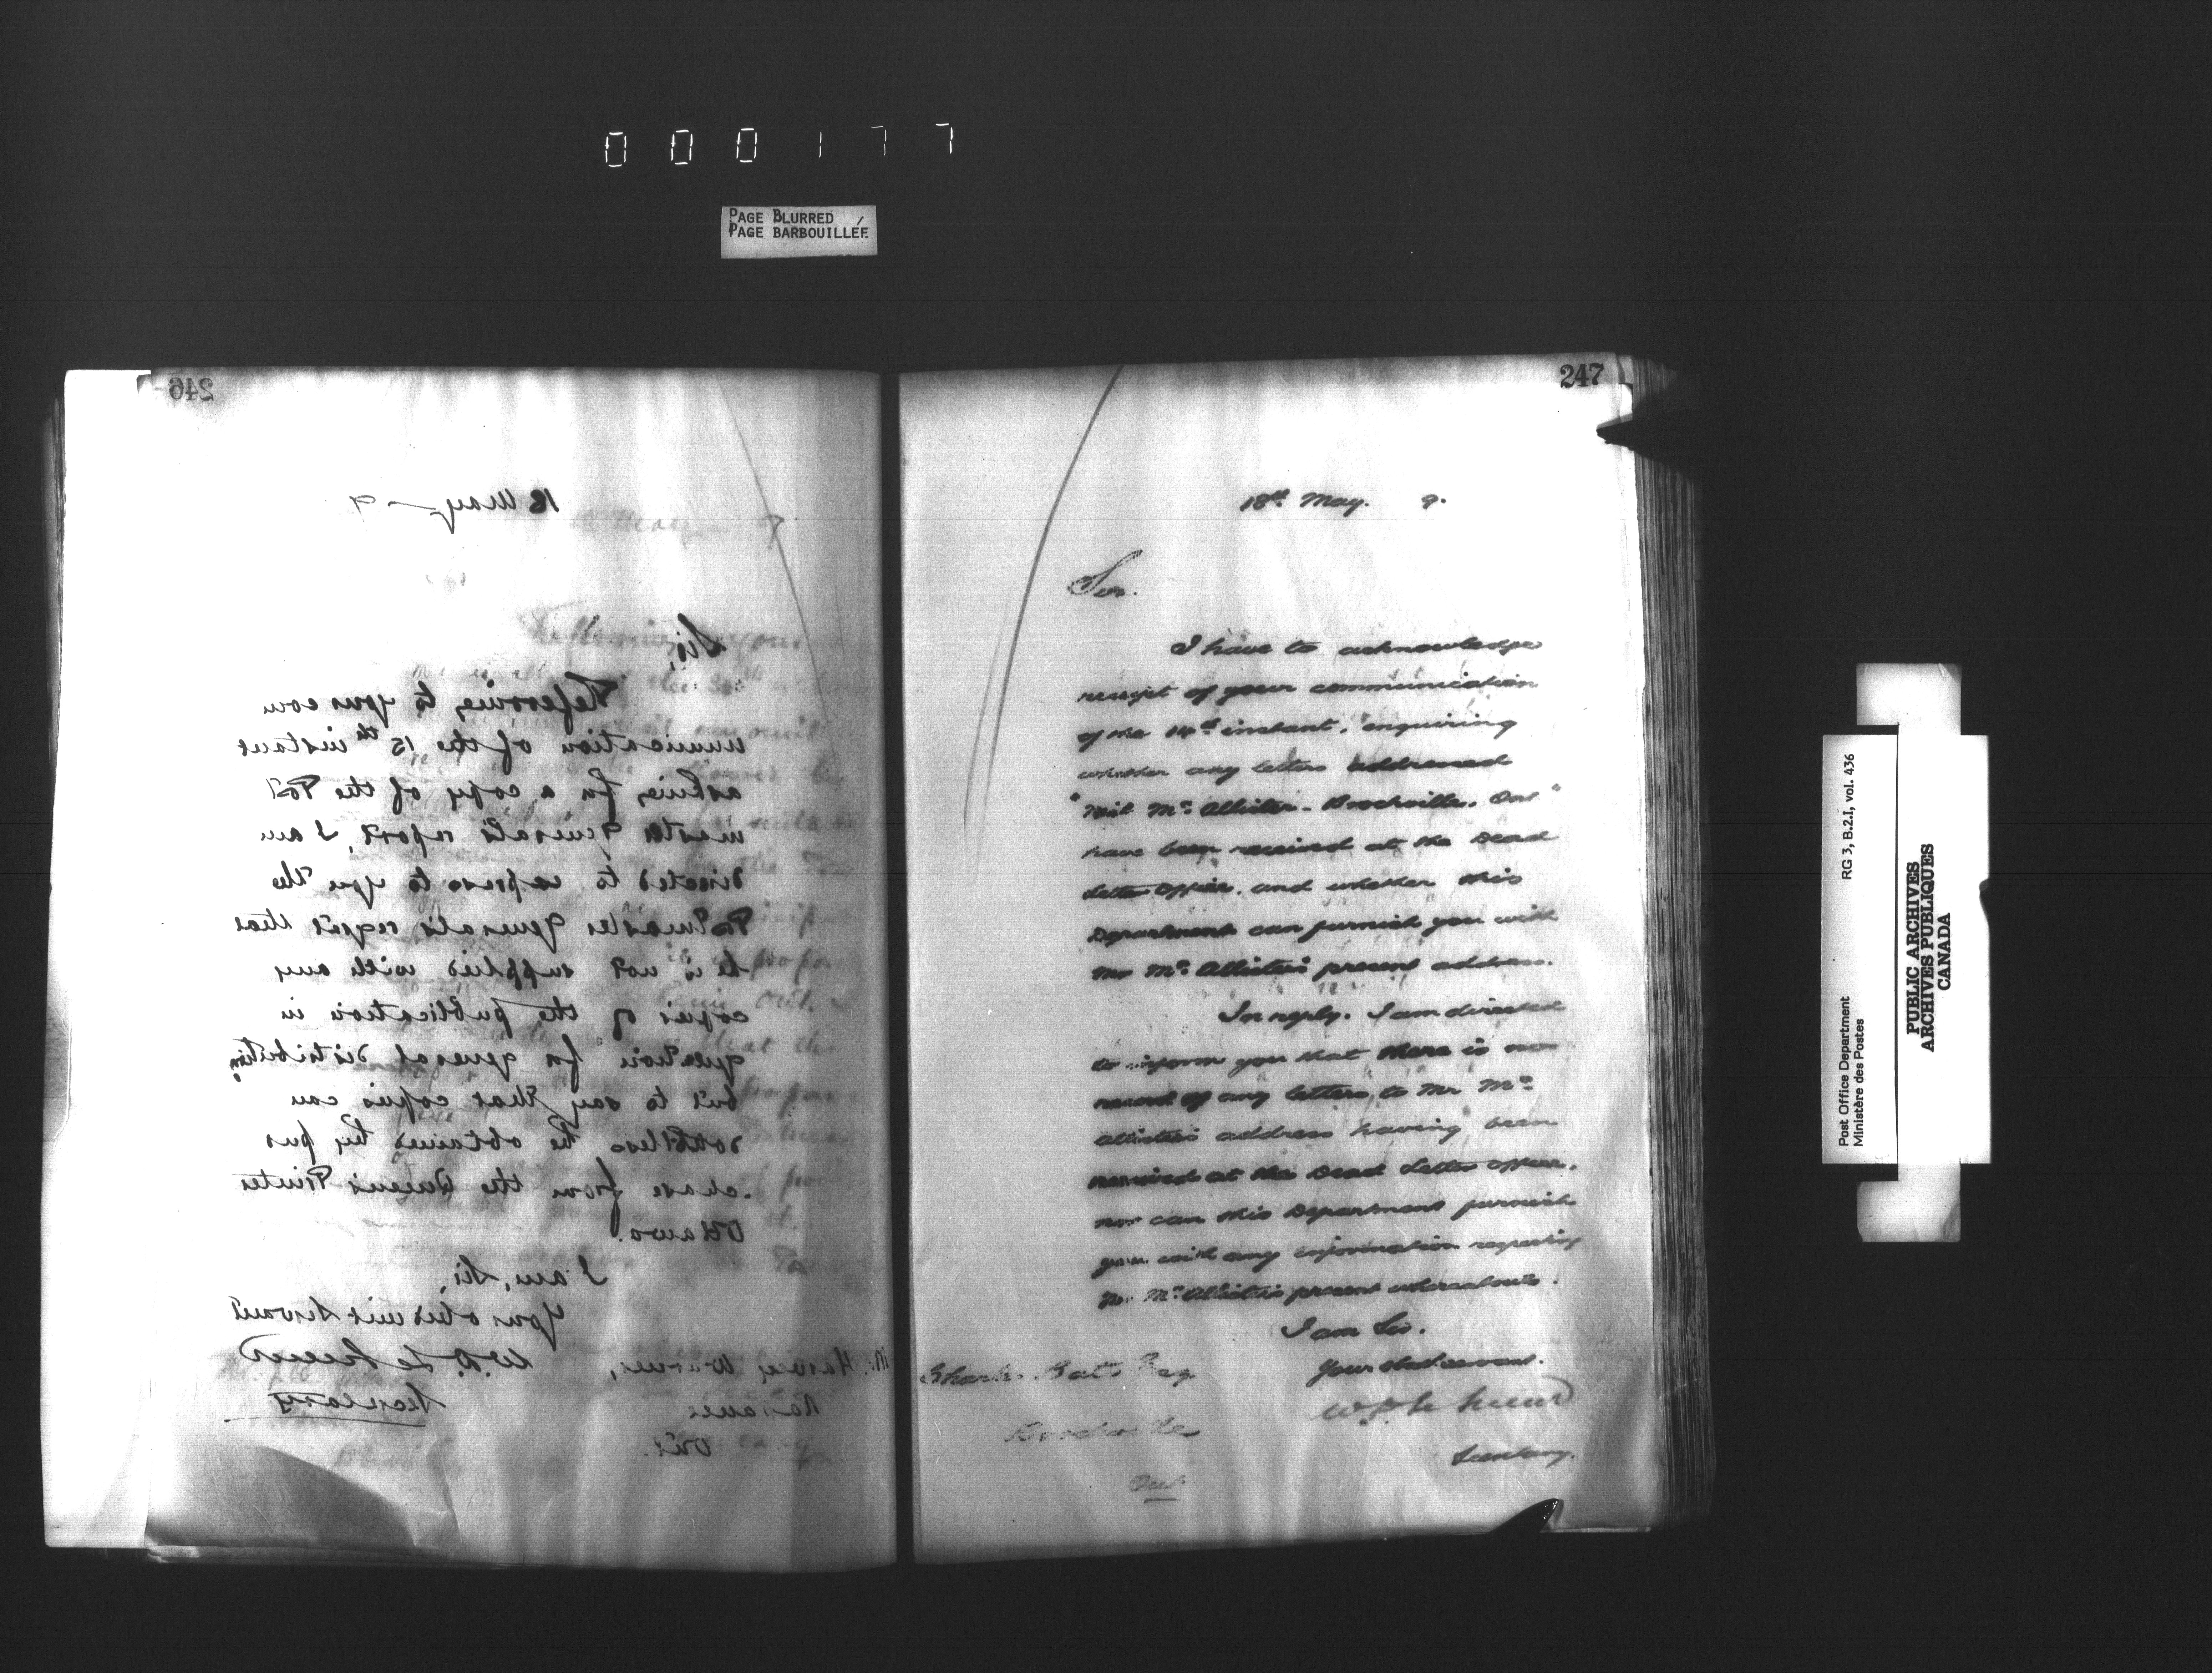 000177
PAGE BLURRED
PAGE BARBOUILLÉE
246
18 May 9
Sir,
Referring to your com
munication of the 15th instant
asking for a copy of the Post
master General's report, I am
directed to express to you the
Postmaster General's regret that
he is not supplied with any
copies of the publication in
question for general distribution,
but to say that copies can
doubtless be obtained by pur
chase from the Queen's Printer
Ottawa.
I am, Sir,
Your obedient Servant
W.D. LeSueur
Secretary
Mr. Harvey Warner,
Napanee
Ont.
247
18th May. 9.
Sir.
I have to acknowledge
receipt of your communication
of the 14th instant, enquiring
whether any letters addressed
"Neil McAllister - Brockville. Ont"
have been received at the Dead
Letter Office, and whether this
Department can furnish you with
Mr McAllister's present address.
In reply, I am directed
to inform you that there is no
record of any letters to Mr Mc
Allister's address having been
received at the Dead Letter Office,
nor can this Department furnish
you with any information regarding
Mr. McAllister's present whereabouts.
I am Sir.
Your obed servant.
W.D. LeSueur
Secretary.
Esq
Brockville
Ont.
Post Office Department
Ministère des Postes
RG 3, B.2.I, vol. 436
PUBLIC ARCHIVES
ARCHIVES PUBLIQUES
CANADA